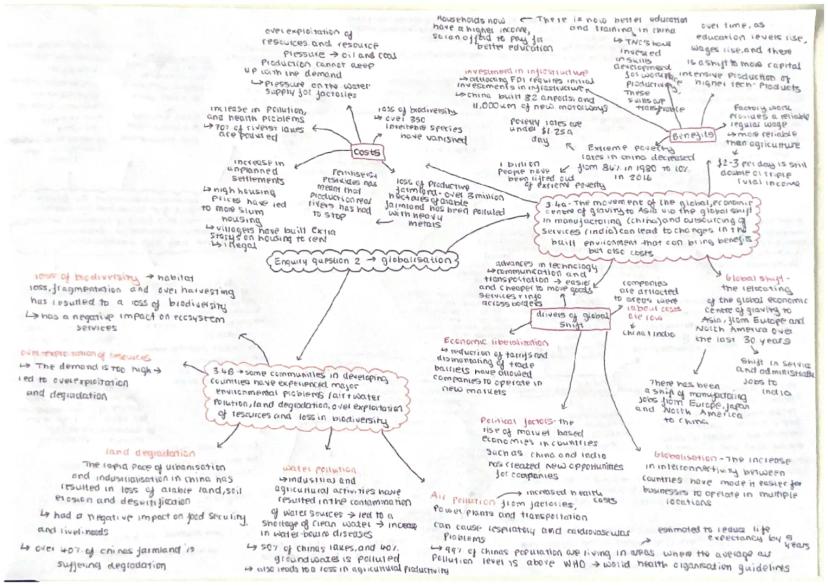 Households now have a higher income, so can afford to pay for better education
There is now better education and training in china
↳ TNC's have invested in skills development for workforce productivity, these skills are transferable
over time, as education levels rise, wages rise, and there is a shift to more capital intensive production of higher tech products
overexploitation of
resources and resource
pressure → oil and coal
production cannot keep
up with the demand
↳ pressure on the water
supply for factories
investment in infrastructure
↳ attracting FDI requires initial
investments in infrastructure
↳ china built 82 airports and
11,000km of new motorways
increase in pollution,
and health problems
↳ 70% of rivers + lakes
are polluted
loss of biodiversity
↳ over 350
species
have vanished
costs
Benefits
factory work
provides a reliable
regular wage
↳ more reliable
than agriculture
↳ $2-3 per day is still
double or triple
rural income
poverty rates are
under $1.25 a
day
Extreme poverty
rates in china decreased
from 84% in 1980 to 10%
in 2016
1 billion
people have
been lifted out
of extreme poverty
increase in
unplanned
settlements
↳ high housing
prices have led
to more slum
housing
↳ villagers have built extra
storeys on housing to rent
↳ illegal
pesticides has
meant that
production near
rivers has had
to stop
loss of productive
farmland - over 3 million
hectares of arable
farmland has been polluted
with heavy
metals
3.4a- The movement of the global economic
centre of gravity to Asia via the global shift
in manufacturing (china) and outsourcing of
services (india) can lead to changes in the
built environment that can bring benefits
but also costs
Enquiry question 2 → globalisation
advances in technology
↳ communication and
transportation → easier
and cheaper to move goods
services + info
across borders
companies
are attracted
to areas were
labour costs
are low
↳ china + india
drivers of global
shift
Global shift -
the relocating
of the global economic
centre of gravity to
Asia, from Europe and
North America over
the last 30 years
Shift in service
and administrative
jobs to
india
There has been
a shift of manufacturing
jobs from Europe, Japan
and North America
to china
Economic liberalization
↳ reduction of tariffs and
dismantling of trade
barriers have allowed
companies to operate in
new markets
Political factors - the
rise of market based
economies in countries
such as china and india
has created new opportunities
for companies
Globalisation - The increase
in interconnectivity between
countries have made it easier for
businesses to operate in multiple
locations
loss of biodiversity → habitat
loss, fragmentation and over harvesting
has resulted to a loss of biodiversity
↳ has a negative impact on ecosystem
services
overexploitation of resources
↳ The demand is too high →
led to overexploitation
and degradation
3.4B → some communities in developing
countries have experienced major
environmental problems (air + water
pollution, land degradation, over exploitation
of resources and loss in biodiversity
land degradation
The rapid pace of urbanisation
and industrialisation in china has
resulted in loss of arable land, soil
erosion and desertification
↳ had a negative impact on food security
and livelihoods
↳ over 40% of chinas farmland is
suffering degradation
water pollution
↳ industrial and
agricultural activities have
resulted in the contamination
of water sources → led to a
shortage of clean water → increase
in water-bourne diseases
↳ 50% of chinas lakes, and 40%
groundwater is polluted
↳ also leads to a loss in agricultural productivity
Air pollution → increased health costs
from factories,
power plants and transportation
can cause respiratory and cardiovascular
problems
estimated to reduce life
expectancy by 5
years
↳ 99% of chinas population are living in areas where the average air
pollution level is above WHO → world health organisation guidelines